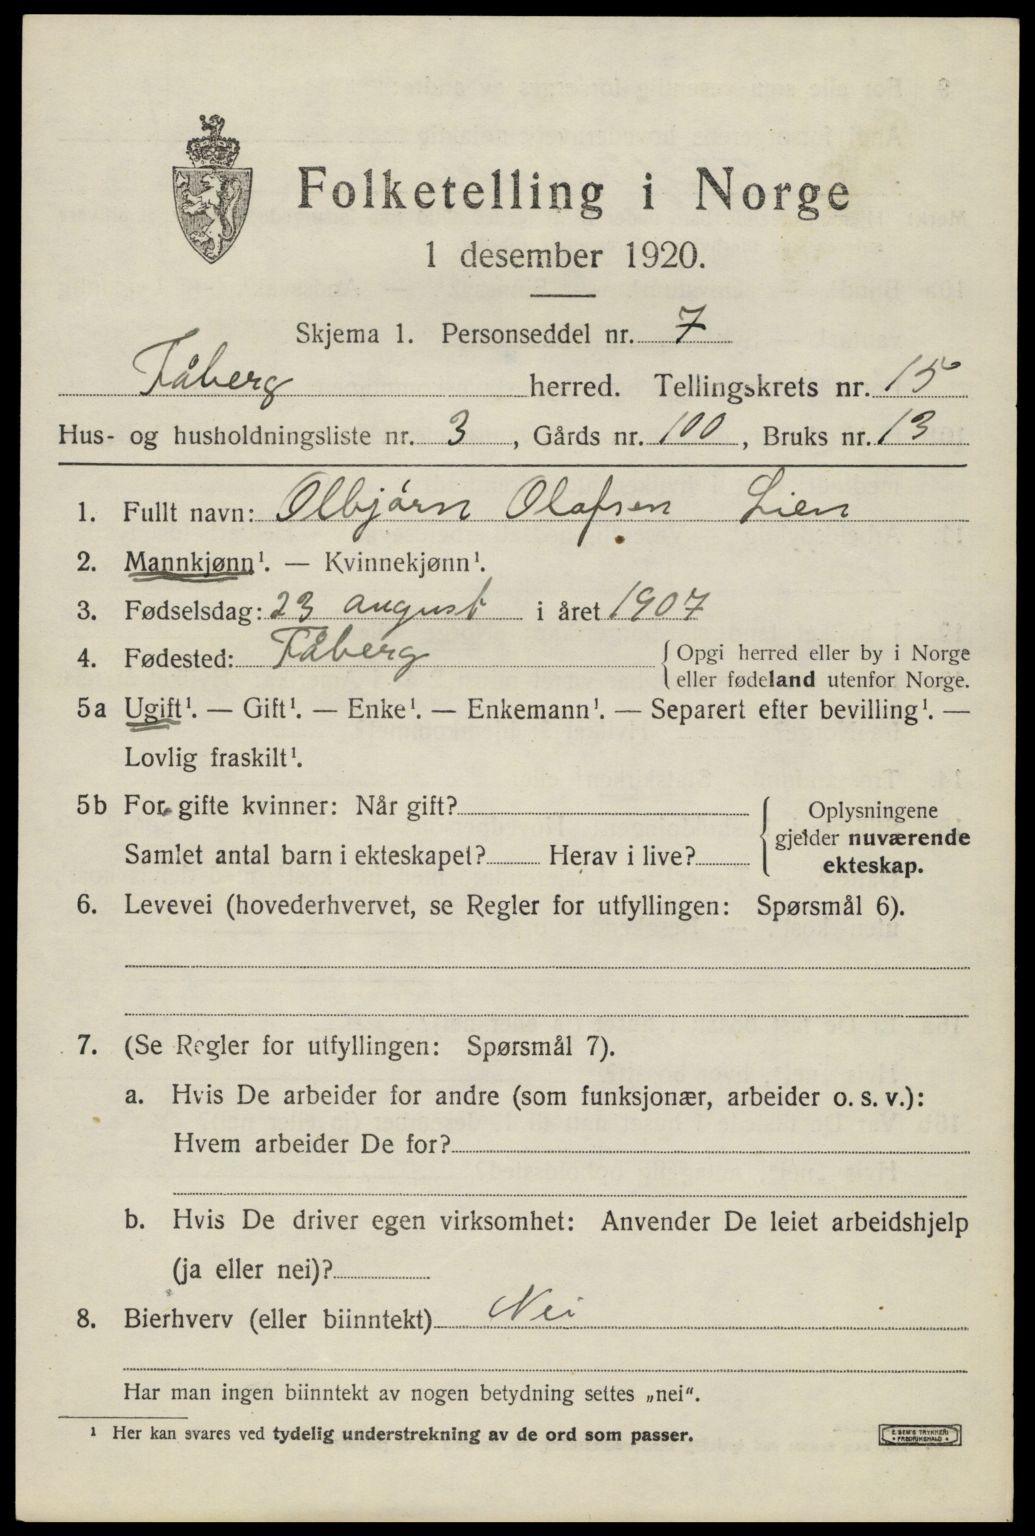 Folketelling i Norge
1 desember 1920.
Skjema 1. Personseddel nr. 7
Fåberg herred. Tellingskrets nr. 15
Hus- og husholdningsliste nr. 3, Gårds nr. 100, Bruks nr. 13
1. Fullt navn: Olbjørn Olafsen Lien
2. Mannkjønn¹. — Kvinnekjønn¹.
3. Fødselsdag: 23 august i året 1907
4. Fødested: Fåberg { Opgi herred eller by i Norge
eller fødeland utenfor Norge.
5a Ugift¹. — Gift¹. — Enke¹. — Enkemann¹. — Separert efter bevilling¹. —
Lovlig fraskilt¹.
5b For gifte kvinner: Når gift?
Samlet antal barn i ekteskapet? Herav i live?
{ Oplysningene
gjelder nuværende
ekteskap.
6. Levevei (hovederhvervet, se Regler for utfyllingen: Spørsmål 6).
7. (Se Regler for utfyllingen: Spørsmål 7).
a. Hvis De arbeider for andre (som funksjonær, arbeider o. s. v.):
Hvem arbeider De for?
b. Hvis De driver egen virksomhet: Anvender De leiet arbeidshjelp
(ja eller nei)?
8. Bierhverv (eller biinntekt) Nei
Har man ingen biinntekt av nogen betydning settes „nei“.
¹ Her kan svares ved tydelig understrekning av de ord som passer.
E. SEM'S TRYKKERI
• FREDRIKSHALD •